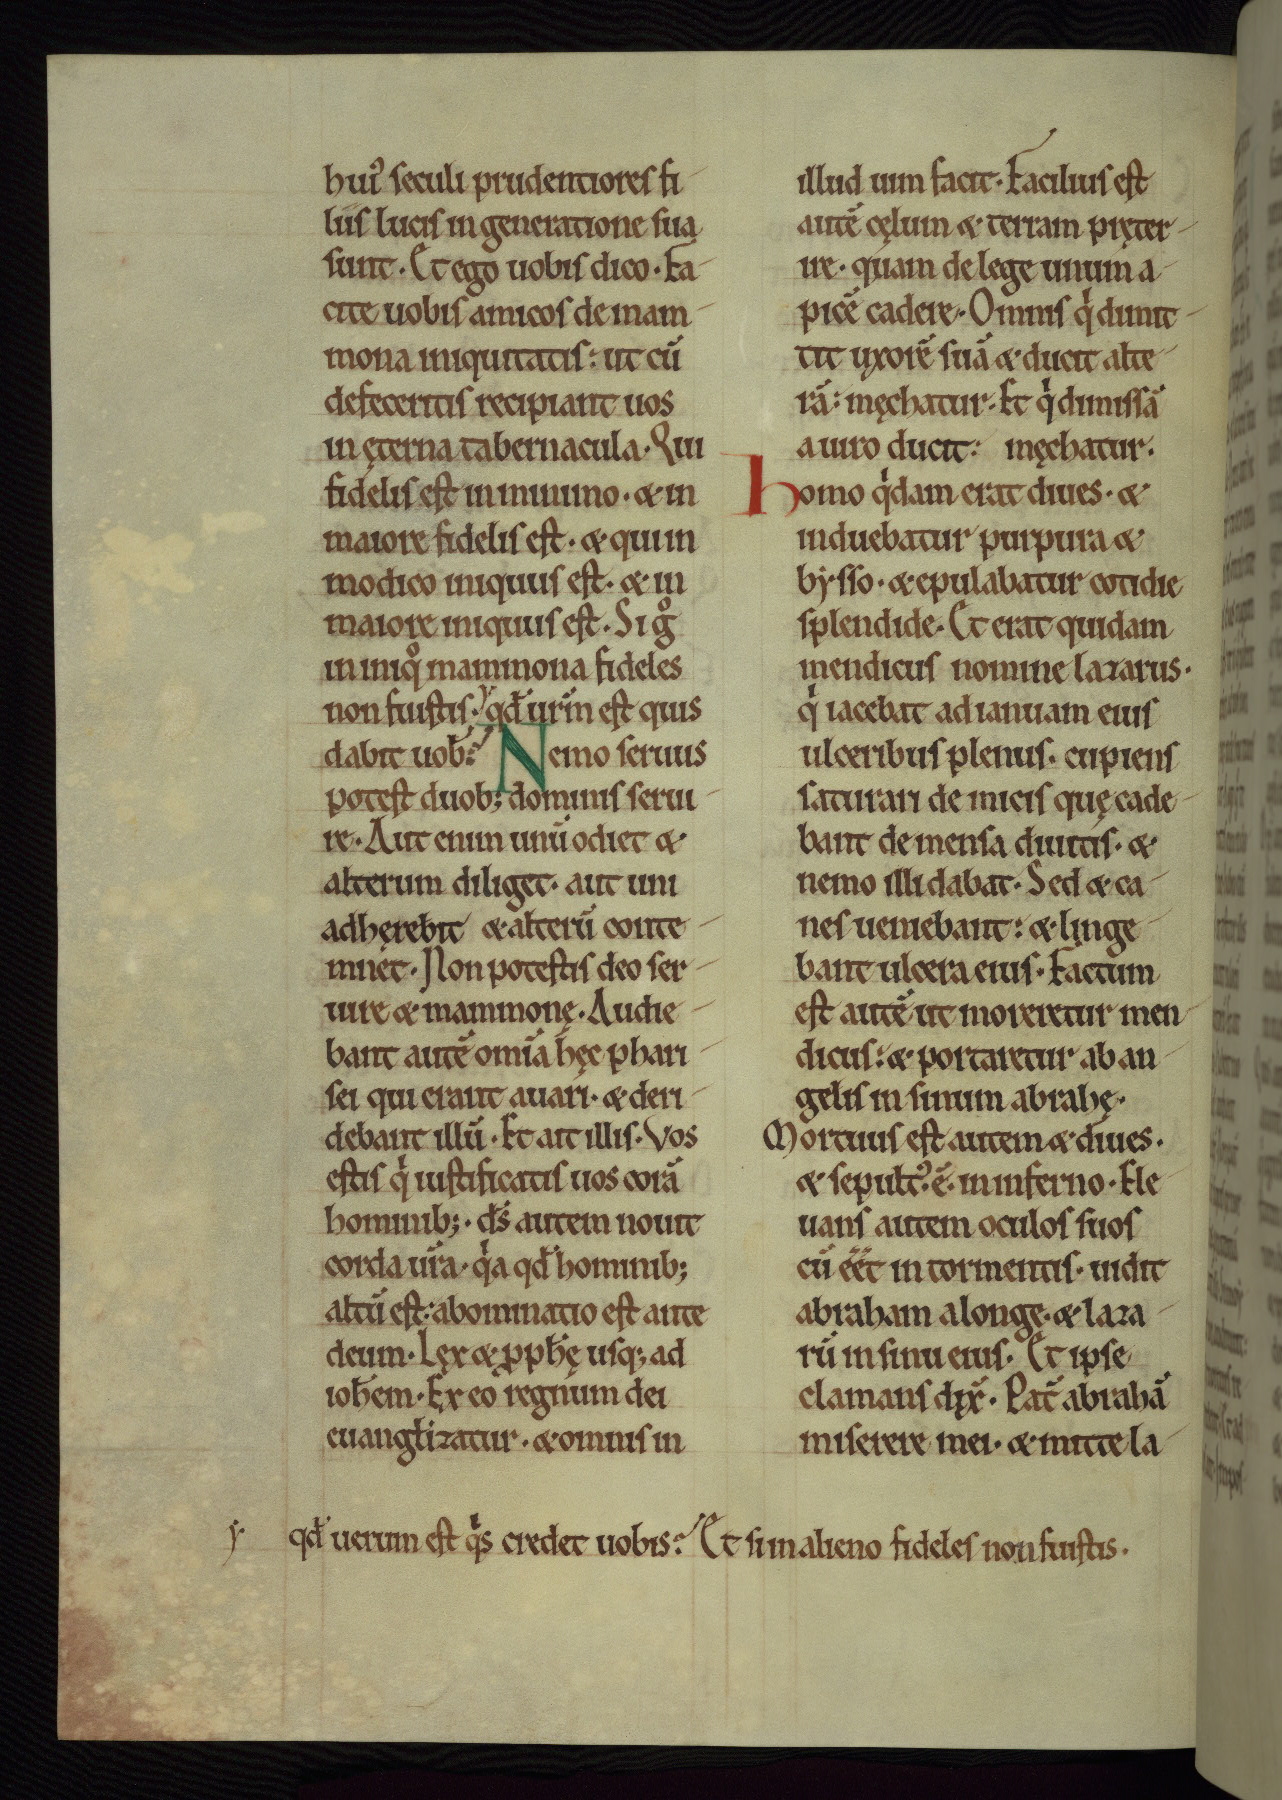 huiꝰ seculi prudentiores fi
liis lucis in generatione sua
sunt. Et ego uobis dico. Fa-
cite uobis amicos de mam-
mona iniquitatis: ut cū
defeceritis recipiant uos
in ęterna tabernacula. Qui
fidelis est in minimo. & in
maiore fidelis est. & qui in
modico iniquus est. & in
maiore iniquus est. Si gͦ
in iniqͦ mammona fideles
non fuistis. ỿ qđ ur̄m est quis
dabit uob̄? Nemo seruus
potest duob; dominis serui-
re. Aut enim unū odiet &
alterum diliget. aut uni
adhęrebit & alterū conte-
mnet. Non potestis deo ser-
uire & mammonę. Audie-
bant autē om̄ia hęc phari-
sei qui erant auari. & deri-
debant illū. Et ait illis. Vos
estis qͥ iustificatis uos corā
hominib;. ds̄ autem nouit
corda ur̄a. qͥa qđ hominib;
altū est: abominatio est ante
deum. Lex & ꝓph̄ę usq; ad
ioh̄em. Ex eo regnum dei
euangłizatur. & omnis in
illud uim facit. Facilius est
autē cęlum & terram pręter-
ire. quam de lege unum a-
picē cadere. Omnis qͥ dimit-
tit uxorē suā & ducit alte-
rā: męchatur. Et qͥ dimissā
a uiro ducit: męchatur.
homo qͥdam erat diues. &
induebatur purpura &
bysso. & epulabatur cotidie
splendide. Et erat quidam
mendicus nomine lazarus.
qͥ iacebat ad ianuam eius
ulceribus plenus. cupiens
saturari de micis quę cade-
bant de mensa diuitis. &
nemo illi dabat. Sed & ca-
nes ueniebant: & linge-
bant ulcera eius. Factum
est autē ut moreretur men-
dicus: & portaretur ab an-
gelis in sinum abrahę.
Mortuus est autem & diues.
& sepultꝰ. ē. in inferno. Ele-
uans autem oculos suos
cū eēt in tormentis. uidit
abraham a longe. & laza-
rū in sinu eius. Et ipse
clamans dix̄. Pat̄ abrahā
miserere mei. & mitte la-
ỿ qđ uerum est qͥs credet uobis? Et si in alieno fideles non fuistis.